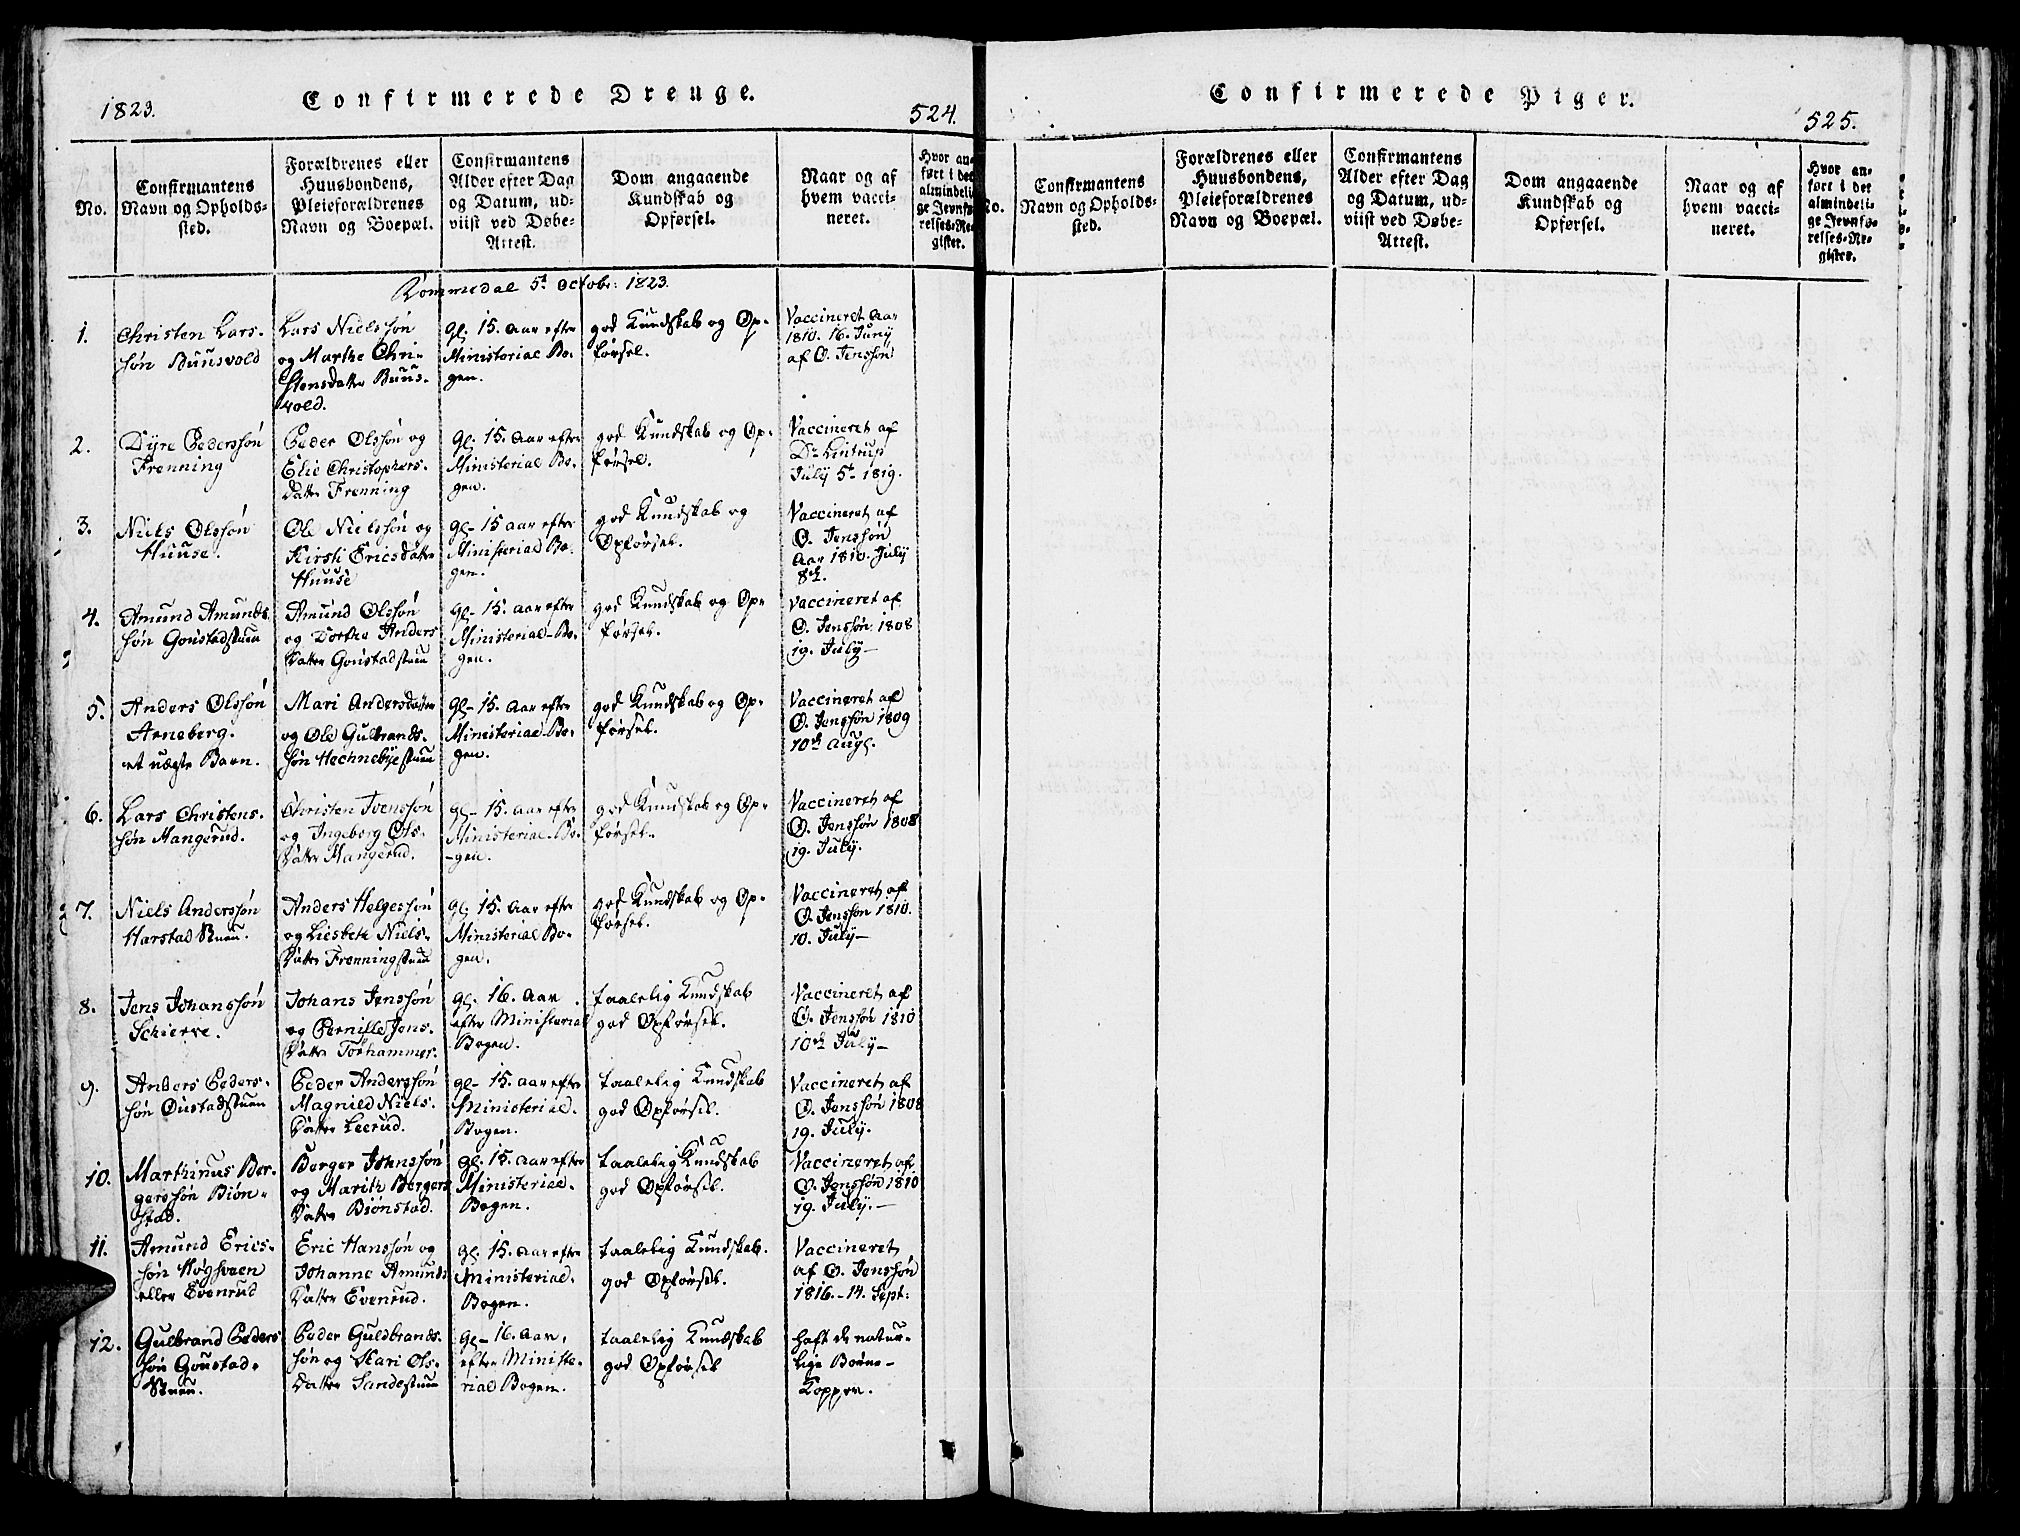 1823.
Confirmerede Drenge.
524.
No.
Confirmantens
Navn og Opholds-
sted.
Forældrenes eller
Huusbondens,
Pleieforældrenes
Navn og Boepæl.
Confirmantens
Alder efter Dag
og Datum, ud-
viist ved Døbe-
Attest.
Dom angaaende
Kundskab og
Opførsel.
Naar og af
hvem vacci-
neret.
Hvor an-
ført i det
almindeli-
ge Jevnfø-
relses-Re-
gister.
Rommedal 5t October 1823.
1.
Christen Lars-
søn Buusvold
Lars Nielssøn
og Marthe Chri-
stensdatter Buus-
vold.
gl. 15. Aar efter
Ministerial Bo-
gen.
god Kundskab og Op-
førsel.
Vaccineret Aar
1810. 16. Juny
af O. Jenssøn
2.
Dyre Pederssøn
Frenning
Peder Olssøn og
Elie Christophers-
Datter Frenning
gl. 15. Aar efter
Ministerial Bo-
gen.
god Kundskab og Op-
førsel.
Vaccineret af
Dr. Lintrup
July 5t 1819.
3.
Niels Olssøn
Huuse.
Ole Nielssøn og
Kirsti Ericsdatter
Huuse
gl- 15 Aar efter
Ministerial Bo-
gen.
god Kundskab og
Opførsel.
Vaccineret af
O. Jenssøn
Aar 1810. July
8de.
4.
Amund Amunds
søn Goustadstuen
Amund Olssøn
og Dorthe Anders
Datter Goustadstuen
gl- 15. Aar efter
Ministerial-Bo-
gen.
god Kundskab og Op-
førsel.
Vaccineret af
O. Jenssøn 1808
19. July-
5.
Anders Olssøn
Arneberg.
et uægte Barn.
Mari Andersdatter
og Ole Gulbrands-
søn Hechnebyestuen
gl- 15. Aar efter
Ministerial-Bo-
gen.
god Kundskab og Op-
førsel.
Vaccineret af
O. Jenssøn 1809
10de Aug.
6.
Lars Christens-
søn Mangerud.
Christen Ivenssøn
og Ingeborg Ols-
Datter Mangerud.
gl- 15. Aar efter
Ministerial-Bo-
-gen.
god Kundskab og Op-
førsel.
Vaccineret af
O. Jenssøn 1808
19. July.
7.
Niels Anderssøn
Harstad Stuen.
Anders Helgessøn
og Liesbeth Niels-
Datter Frenningstuen
gl. 15. Aar efter
Ministerial Bo-
gen.
god Kundskab og Op-
førsel.
Vaccineret af
O. Jenssøn 1810.
10. July-
8.
Jens Johanssøn
Schierre.
Johans Jenssøn
og Pernille Jens-
Datter Torhammer.
gl. 16. Aar
efter Ministerial
Bogen.
taalelig Kundskab
god Opførsel.
Vaccineret af
O. Jenssøn 1810
10de July-
9.
Anders Peders-
søn Oustadstuen
Peder Anderssøn
Magnild Niels-
Datter Leerud.
gl- 15. Aar efter
Ministerial-
Bogen.
taalelig Kundskab
god Opførsel.
Vaccineret af
O. Jenssøn 1808
19. July.
10.
Marthinus Ber-
gerssøn Biøn-
stad.
Berger Johnssøn
og Marith Bergers
Datter Biønstad.
gl. 15. Aar efter
Ministerial-
Bogen.
taalelig Kundskab
god Opførsel.
Vaccineret af
O. Jenssøn 1810
19. July.-
11.
Amund Erics-
søn Høysveen
eller Evenrud
Eric Hanssøn og
Johanne Amunds
Datter Evenrud.
gl. 15. Aar efter
Ministerial-
Bogen.
taalelig Kundskab.
god Opførsel.
Vaccineret
af O. Jenssøn
1816.-14. Sept:
12.
Gulbrand Peders
søn Goustad-
Stuen.
Peder Guldbrands-
søn og Kari Ols-
Datter Sandestuen
gl- 16. Aar,
efter Ministe-
rial Bogen.
taalelig Kundskab
god Opførsel
haft de natur-
lige Børne-
Kopper.
Confirmerede Piger.
525.
No.
Confirmantens
Navn og Opholds-
sted.
Forældrenes eller
Huusbondens,
Pleieforældrenes
Navn og Boepæl.
Confirmantens
Alder efter Dag
og Datum, ud-
viist ved Døbe-
Attest.
Dom angaaende
Kundskab og
Opførsel.
Naar og af
hvem vacci-
neret.
Hvor an-
ført i det
almindeli-
ge Jevnfø-
relses-Re-
gister.